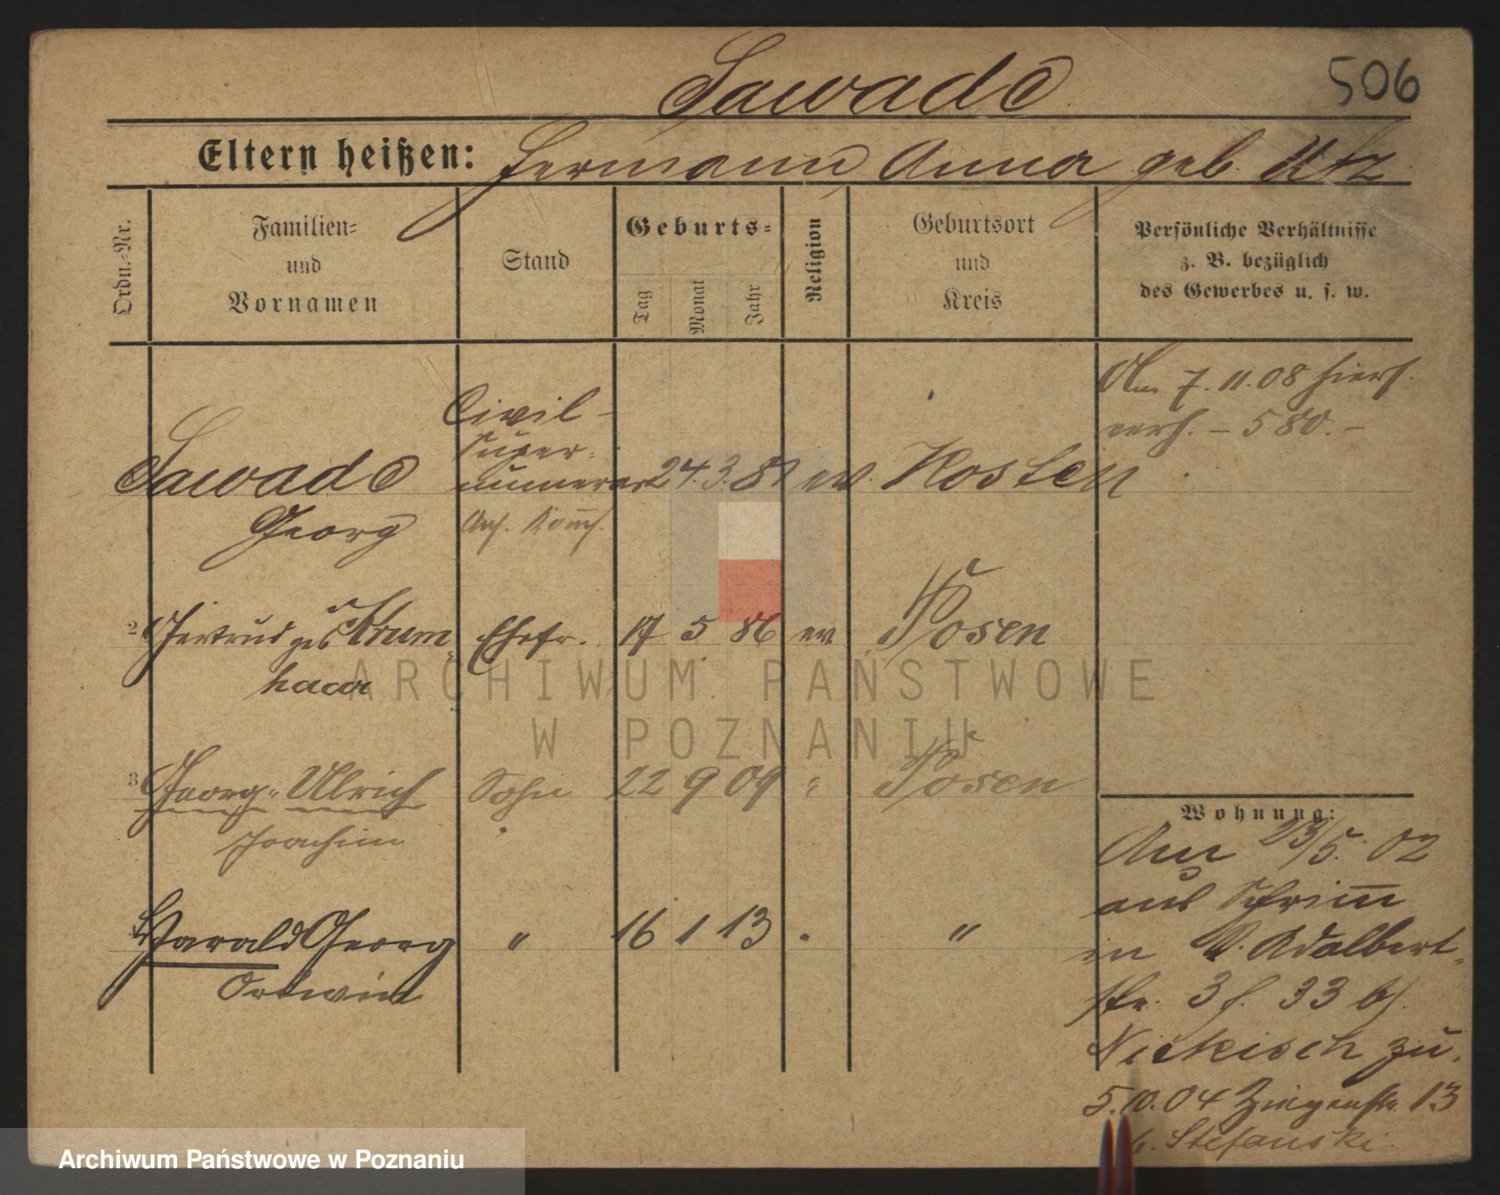 506
Sawade
Eltern heißen: Hermann Anna geb. Utz
Ordn.-Nr.
Familien-
und
Vornamen
Stand
Geburts-
Tag
Monat
Jahr
Religion
Geburtsort
und
Kreis
Persönliche Verhältnisse
z. B. bezüglich
des Gewerbes u. s. w.
Am 7.11.08 hiers.
verh. – 580. –
Sawade
Georg
Civil-
Super-
numerar
24. 3. 81 ev. Kosten
2 Gertrud geb. Krum- Ehefr. 17 5 86 ev. Posen
haar
3 Georg-Ulrich Sohn 22 9 09 " Posen
Joachim
4 Harald Georg " 16 1 13 "
Ortwin
Wohnung:
Am 23/5. 02
aus Schrimm
in Adalbert-
str. 3 33 b/
Nickisch zu.
5.10.04 Ziegenstr. 13
b. Stefanski
ARCHIWUM PAŃSTWOWE
W POZNANIU
Archiwum Państwowe w Poznaniu